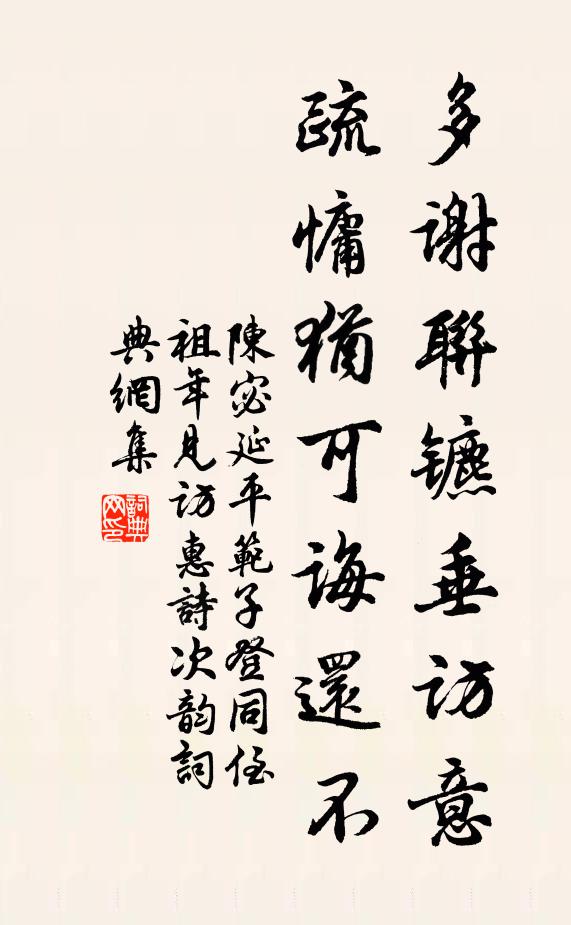 多谢聯鑣垂訪意
疏慵猶可誨還不
陳宓延平範子登同侄
祖年見訪惠詩次韵詞
典網集
詞典网印